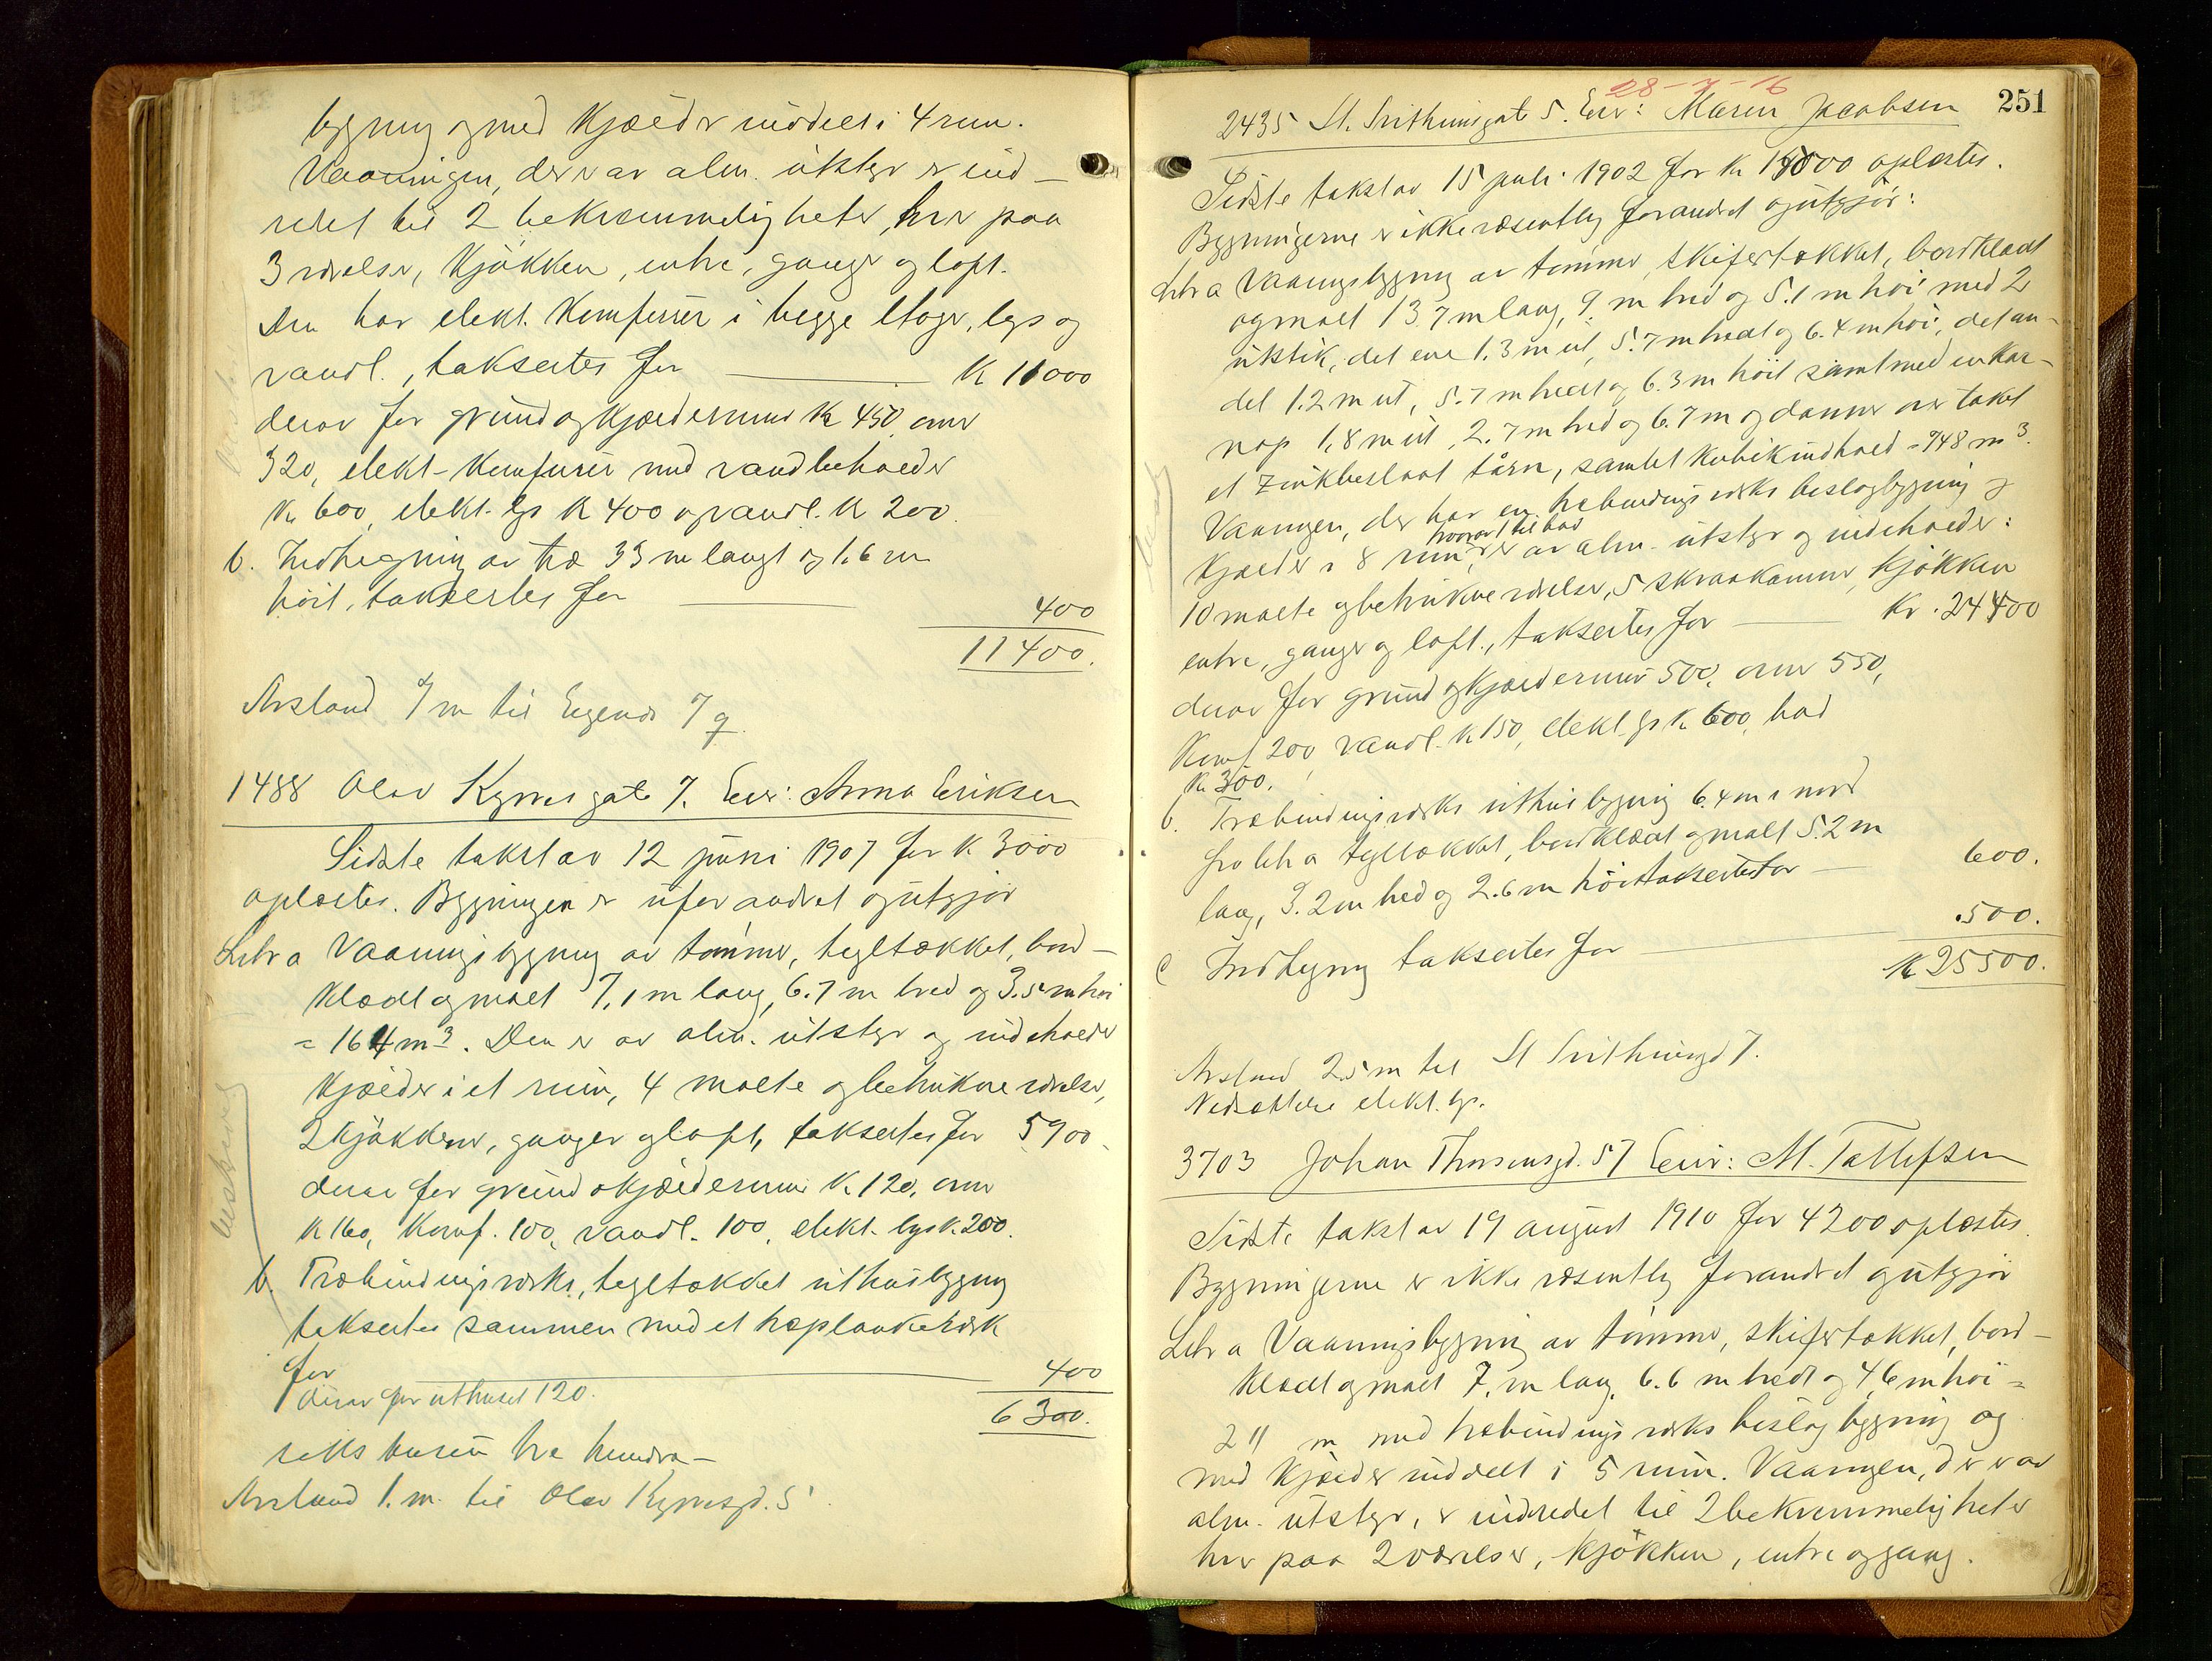 bygning og med Kjælder inddelt i 4 rum.
Vaaningen, der er av alm. utstyr er ind-
redet til 2 bekvemmeligheter, hver paa
3 værelser, Kjøkken, entre, gange og loft.
Den har elekt. Komfurer i begge etager, lys og
vandl., takseertes for K 11000
derav for grund og Kjældermur Kr 450, ovner
320, elekt-Komfurer med vandbeholder
Kr 600, elekt. lys K 400 og vandl. K 200.
b. Indhegning av træ 33 m langt og 1.6 m
høit, takseertes for 400
11400.
Avstand 7 m til Eiganes
1488 Olav Kyrres gate 7. Eier: Anna Eriksen
Sidste takst av 12 juni 1907 for K 3000
oplæstes. Bygningen er uforandret og utgjør
Litr a Vaaningsbygning av tømmer, tegltækket, bord-
klædt og malt 7,1 m lang, 6.7 m bred og 3.5 m høi
= 164 m3. Den er av alm. utstyr og indeholder
Kjælder i et rum, 4 malte og betrukne værelser,
2 Kjøkkener, ganger og loft, takseertes for 5900
derav for grund og kjældermur K 120, ovner
K 160, Komf. 100, vandl. 100, elekt. lys K. 200.
b. Træbindingsverks, tegltækket uthusbygning
takseertes sammen med et træplankeverk
for 400
derav for uthuset 120.
6300.
seks tusen tre hundre -
Avstand 1. m. til Olav Kyrresgd. 5
beskrevet
28-7-16
251
2435 St. Svithunsgate 5. Eier: Maren Jacobsen
Sidste takst av 15 juli 1902 for K 15000 oplæstes.
Bygningerne er ikke væsentlig forandret og utgjør:
Litr a Vaaningsbygning av tømmer, skifertækket, bordklædt
og malt 13.7 m lang, 9. m bred og 5.1 m høi med 2
utstik, det ene 1.3 m ut, 5.7 m bredt og 6.4 m høi, det an-
det 1.2 m ut, 5.7 m bredt og 6.3 m høit samt med en kar-
nap 1,8 m ut, 2.7 m bred og 6.7 m og danner over taket
et zinkbeslaat tårn, samlet Kubikindhold = 748 m3.
Vaaningen, der har en træbindingsverks beslagbygning og
Kjælder i 8 rum, hvorav 1 til bad er av alm. utstyr og indeholder:
10 malte og betrukne værelser, 5 skraakamre, Kjøkken
entre, gange og loft., takseertes for Kr. 24400
derav for grund og Kjældermur 500, ovner 550,
Komf 200 vandl. K 150, elekt. lys K. 600, bad
Kr 300.
b. Træbindingsverks uthusbygning 6.4 m i nord
fra litr a tegltækket, bordklædt og malt 5.2 m
lang, 3.2 m bred og 2.6 m høi takseertes for 600.
c Indhegning takseertes for 500.
K 25500.
Avstand 2.5 m til St Svithunsgd 7.
Nedsættelse elekt. lys.
3703 Johan Thorsensgd. 57 Eier: M. Tallefsen
Sidste takst av 19 august 1910 for 4200 oplæstes.
Bygningerne er ikke væsentlig forandret og utgjør
Litr a Vaaningsbygning av tømmer, skifertækket, bord-
klædt og malt 7. m lang, 6.6 m bredt og 4,6 m høi =
211 m med træbindingsverks beslagbygning og
med Kjælder inddelt i 5 rum. Vaaningen, der er av
alm. utstyr, er indredet til 2 bekvemmeligheter
hver paa 2 værelser, Kjøkken, entre og gang.